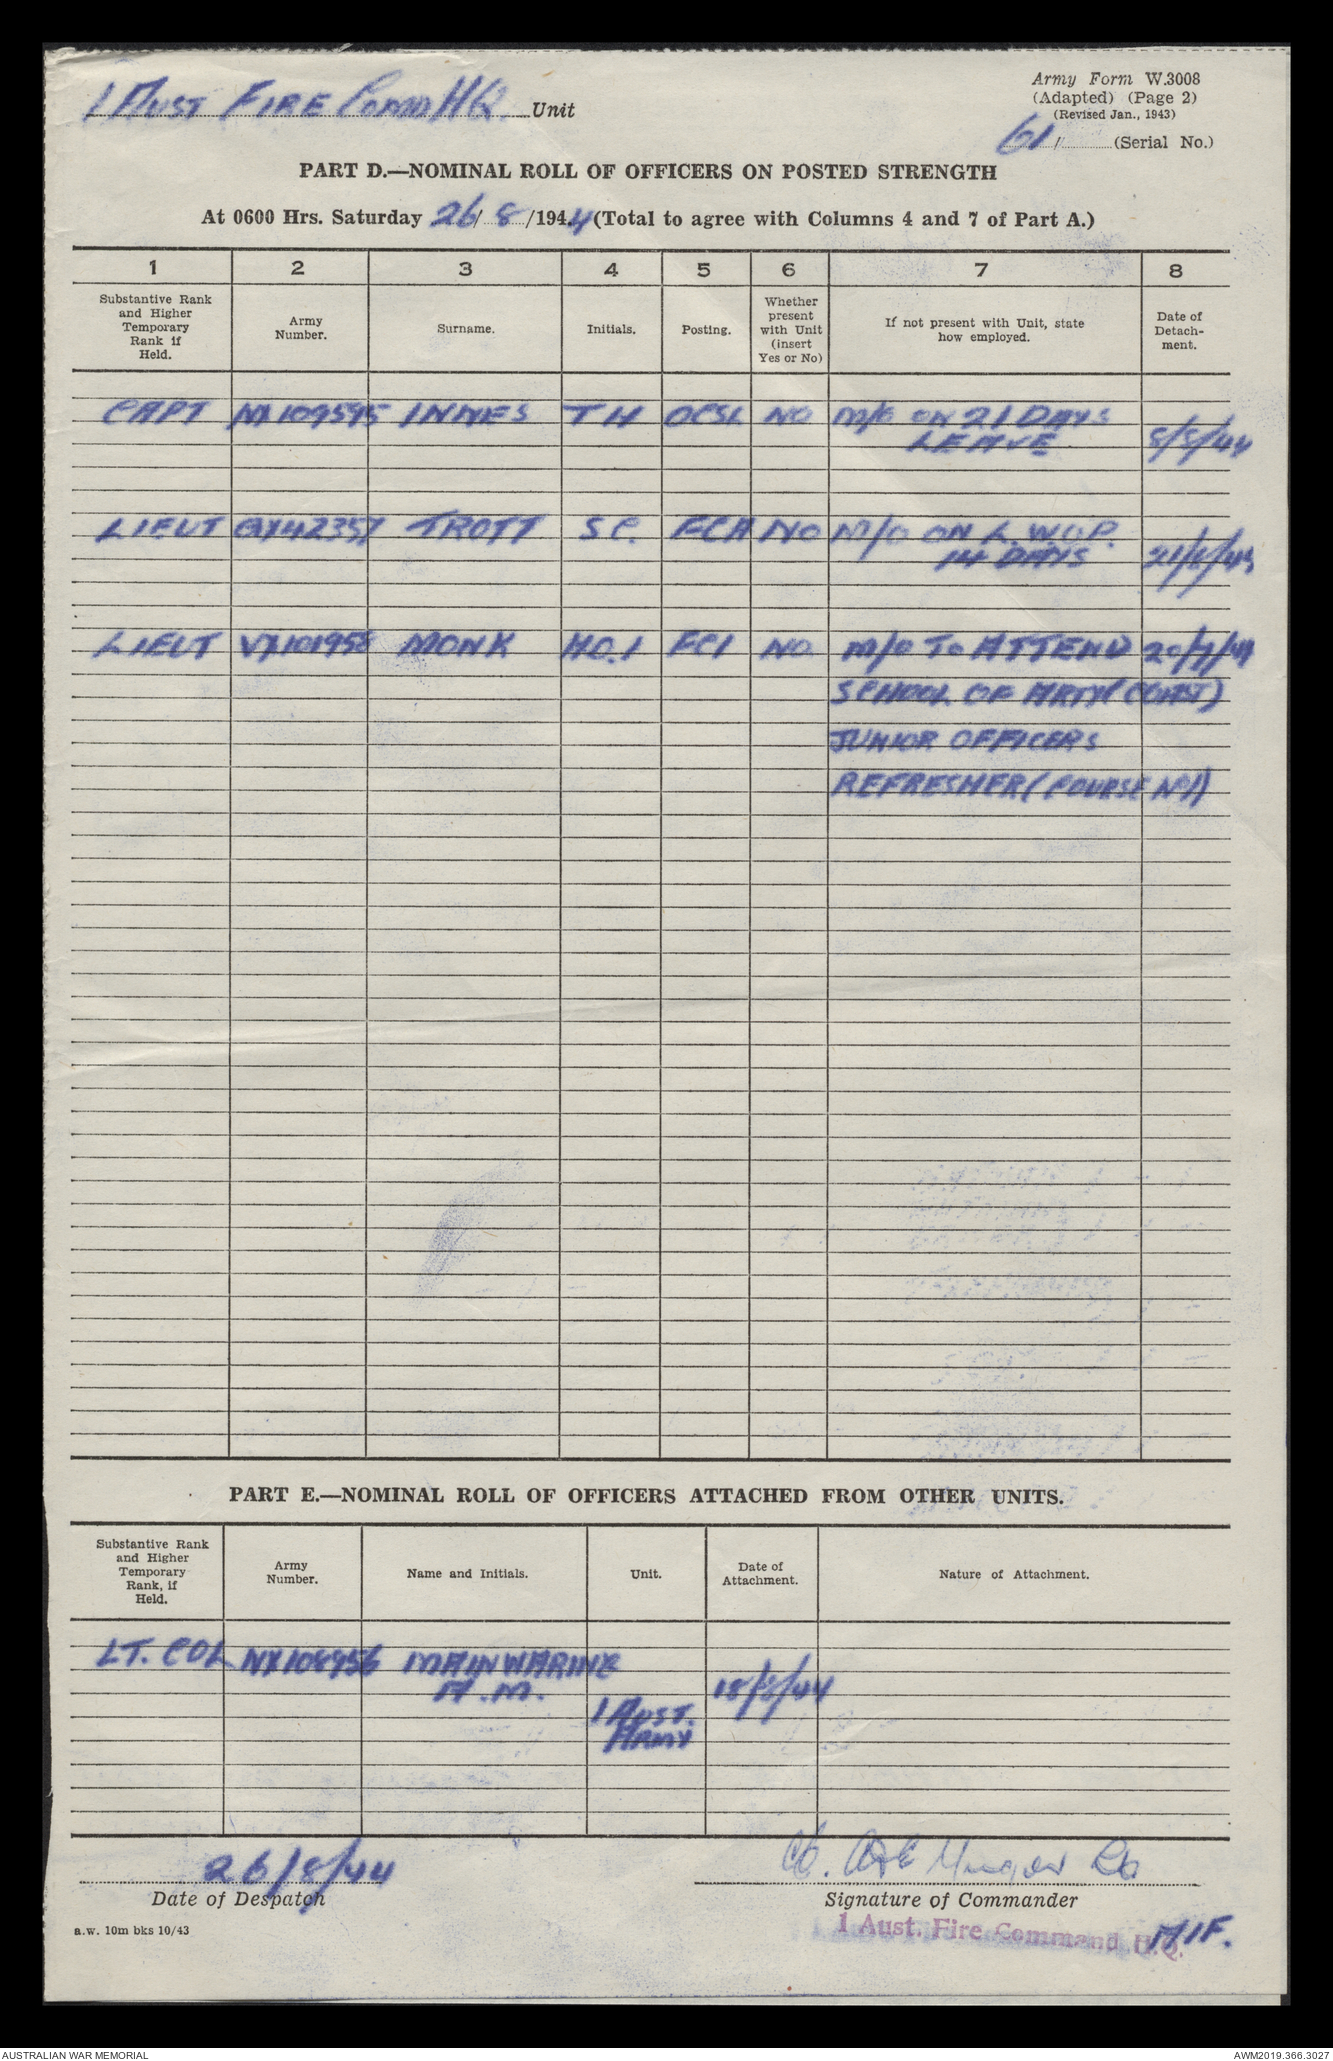 1 AUST FIRE COMD HQ. Unit
Army Form W.3008
(Adapted) (Page 2)
(Revised Jan., 1943)
61/ (Serial No.)
PART D.—NOMINAL ROLL OF OFFICERS ON POSTED STRENGTH
At 0600 Hrs. Saturday 26/8/1944 (Total to agree with Columns 4 and 7 of Part A.)
1 2 3 4 5 6 7 8
Substantive Rank and Higher Temporary Rank if Held.
Army Number.
Surname.
Initials.
Posting.
Whether present with Unit (insert Yes or No)
If not present with Unit, state how employed.
Date of Detach-ment.
CAPT NX109595 INNES TH OCSL NO M/O ON 21 DAYS
LEAVE 8/8/44
LIEUT QX42357 TROTT S C. FCA NO M/O ON L.W.O.P.
14 DAYS
LIEUT VX101958 MONK H.O.I FCI NO. M/O TO ATTEND 20/7/44
SCHOOL OF ARTY (COAST)
JUNIOR OFFICERS
REFRESHER (COURSE No1)
PART E.—NOMINAL ROLL OF OFFICERS ATTACHED FROM OTHER UNITS.
Substantive Rank and Higher Temporary Rank, if Held.
Army Number.
Name and Initials.
Unit.
Date of Attachment.
Nature of Attachment.
LT. COL NX108956 MAINWARING
A.M. 18/8/44
1 AUST.
ARMY
26/8/44
Date of Despatch
Signature of Commander
a.w. 10m bks 10/43
1 Aust. Fire Command H.Q.
AIF.
AUSTRALIAN WAR MEMORIAL
AWM2019.366.3027